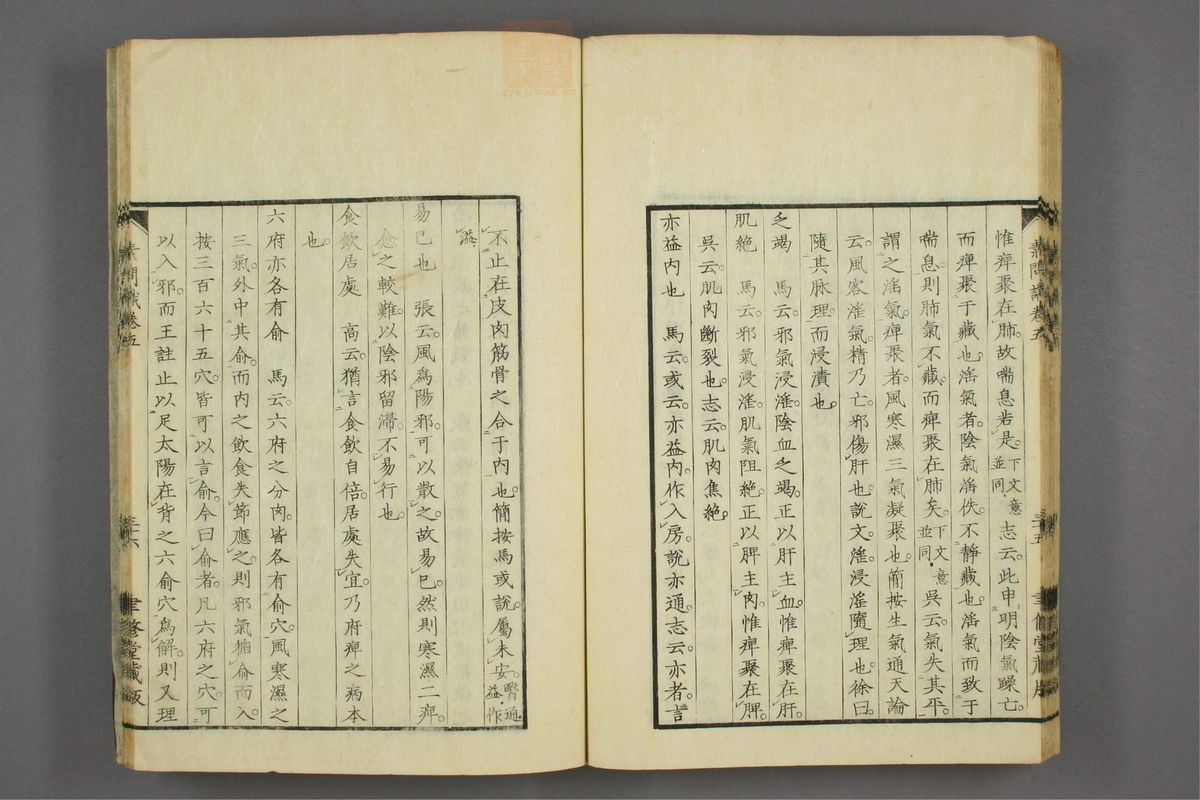 惟痺聚在肺。故喘息若是。下文意並同。志云。此申明陰氣躁亡。
而痺聚于藏也。淫氣者。陰氣淫佚。不靜藏也。淫氣而致于
喘息。則肺氣不藏。而痺聚在肺矣。下文意並同。吳云。氣失其平。
謂之淫氣。痺聚者。風寒濕三氣凝聚也。簡按生氣通天論
云。風客淫氣。精乃亡。邪傷肝也。說文。淫。浸淫隨理也。徐曰
隨其脉理。而浸漬也。
乏竭　馬云。邪氣浸淫。陰血乏竭。正以肝主血。惟痺聚在肝。
肌絕　馬云。邪氣浸淫。肌氣阻絕。正以脾主肉。惟痺聚在脾。
吳云。肌肉斷裂也。志云。肌肉焦絕。
亦益內也　馬云。或云。亦益內。作入房。說亦通。志云。亦者。言
素問識卷五
三十五
聿修堂藏版
不止在皮肉筋骨之合于內也。簡按馬或說。屬未安。醫通。益作
溢。
易已也　張云。風爲陽邪。可以散之。故易已。然則寒濕二痺。
愈之較難。以陰邪留滯。不易行也。
食飲居處　高云。猶言食飲自倍。居處失宜。乃府痺之病本
也。
六府亦各有俞　馬云。六府之分肉。皆各有俞穴。風寒濕之
三氣。外中其俞。而內之飲食失節應之。則邪氣循俞而入。
按三百六十五穴。皆可以言俞。今曰俞者。凡六府之穴。可
以入邪。而王註止以足太陽在背之六俞穴爲解。則又理
素問識卷五
三十六
聿修堂藏版